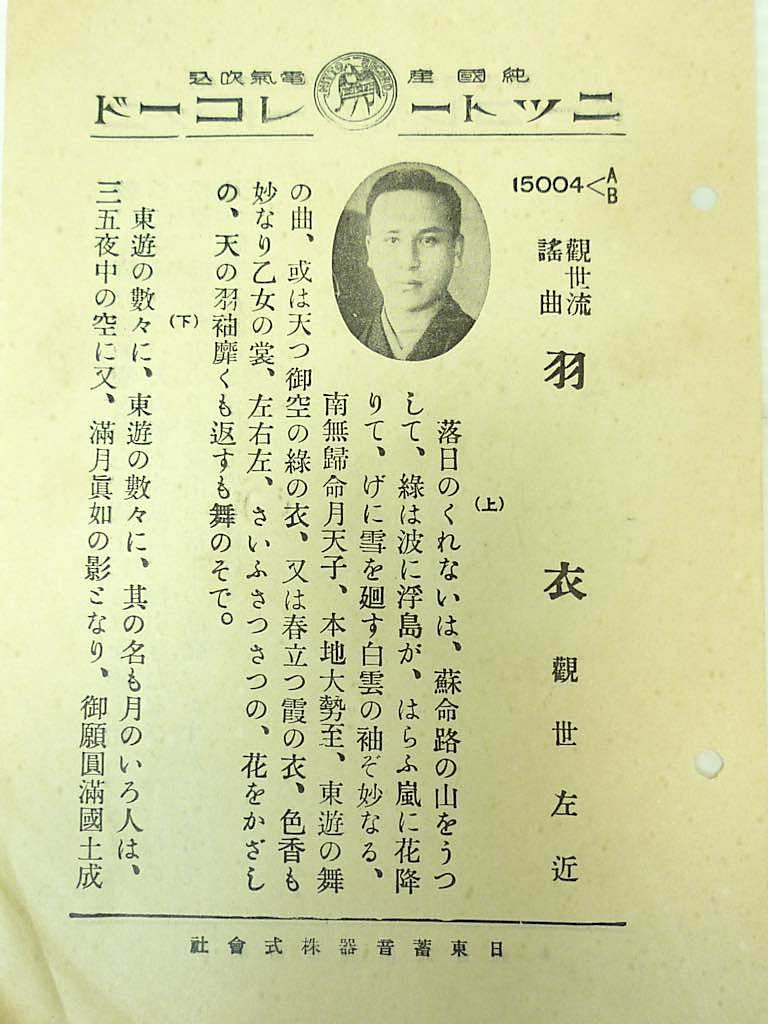 純國產 電氣吹込
ニットーレコード
NITTO RECORD
15004<A/B
觀世流
謠曲
羽衣
觀世左近
(上)
落日のくれないは、蘇命路の山をうつ
して、綠は波に浮島が、はらふ嵐に花降
りて、げに雪を廻す白雲の袖ぞ妙なる、
南無歸命月天子、本地大勢至、東遊の舞
の曲、或は天つ御空の綠の衣、又は春立つ霞の衣、色香も
妙なり乙女の裳、左右左、さいふさつさつの、花をかざし
の、天の羽袖靡くも返すも舞のそで。
(下)
東遊の數々に、東遊の數々に、其の名も月のいろ人は、
三五夜中の空に又、滿月眞如の影となり、御願圓滿國土成
日東蓄音器株式會社